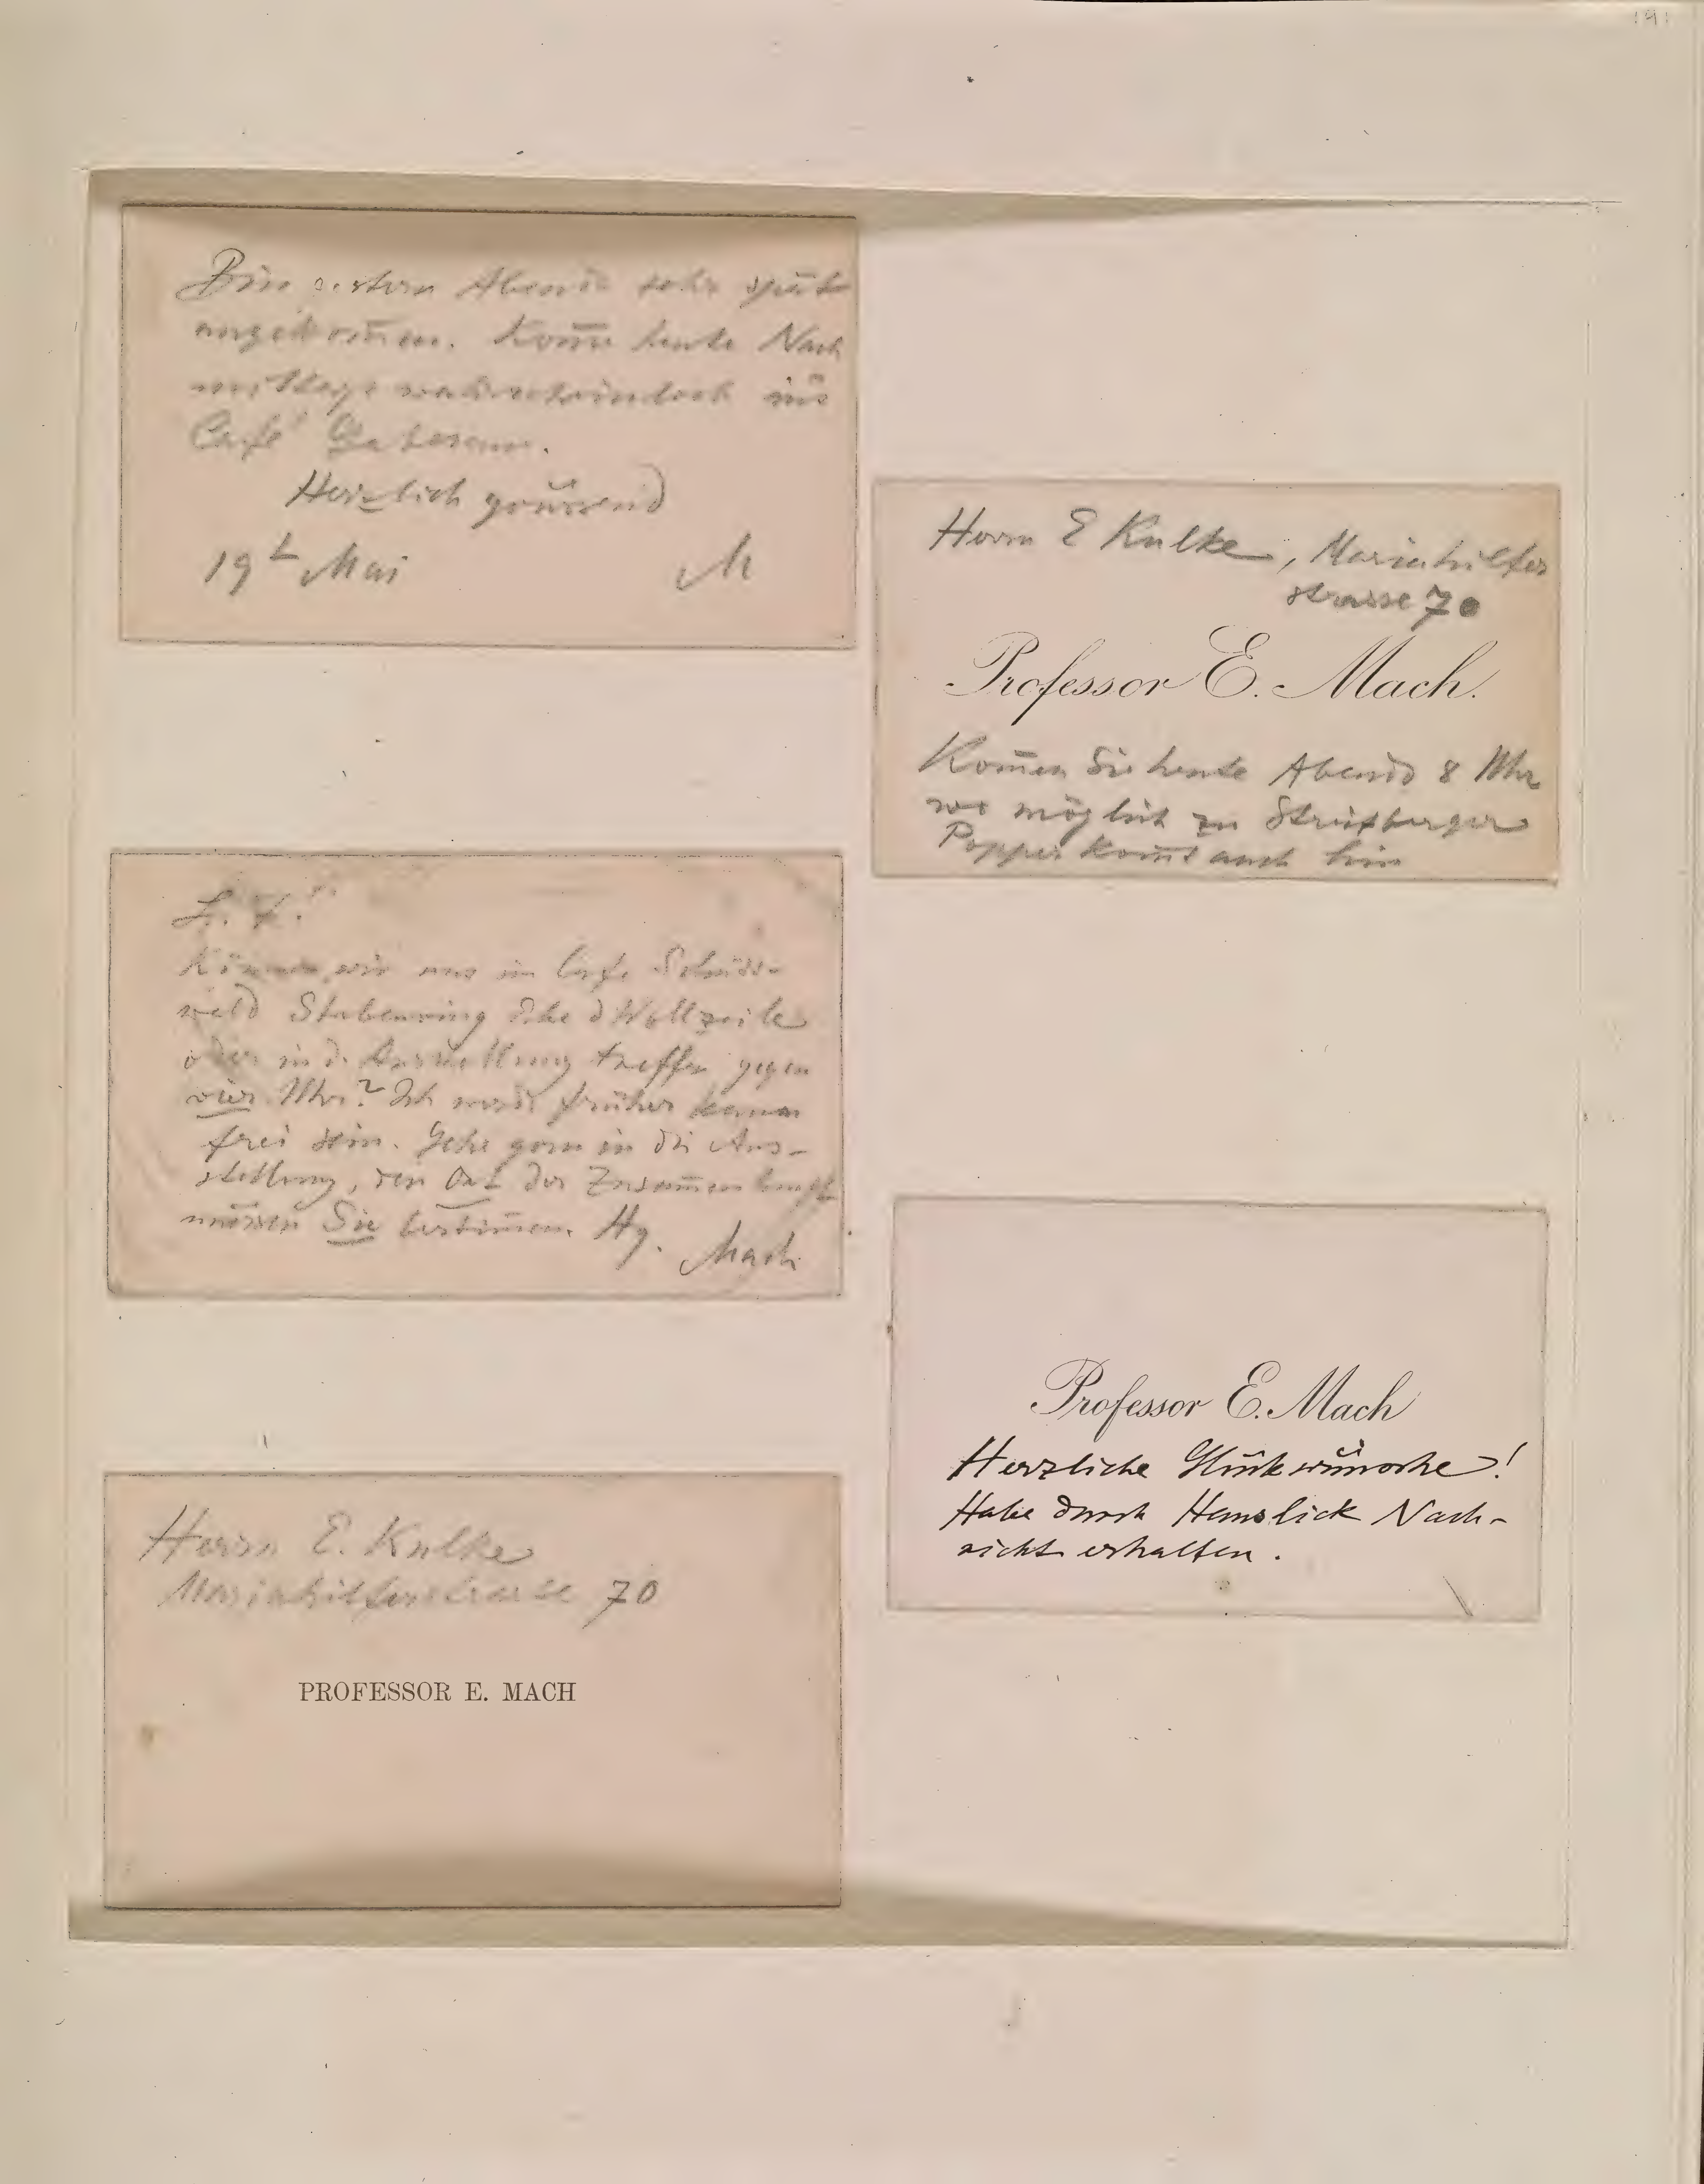 191
Bin gestern Abend sehr spät
angekom̄en. Kom̄e heute Nach
mittags wahrscheinlich ins
Café
Herzlich grüssend
19t Mai M
Herrn E Kulke, Mariahilfer
strasse 70
Professor E. Mach.
Kom̄en Sie heute Abend 8 Uhr
wo möglich zu
Popper kom̄t auch hin
L. K!
Können wir uns im Cafe
Stubenring Ecke d Wollzeile
oder in d. Ausstellung treffen gegen
vier Uhr? Ich werde früher kaum
frei sein. Gehe gern in die Aus-
stellung, den Ort der Zusam̄enkunft
müssen Sie bestim̄en. Hg. Mach
Professor E. Mach
Herzliche Glückwünsche!
Habe durch Hanslick Nach-
richt erhalten.
Herrn E. Kulke
Mariahilferstrasse 70
PROFESSOR E. MACH